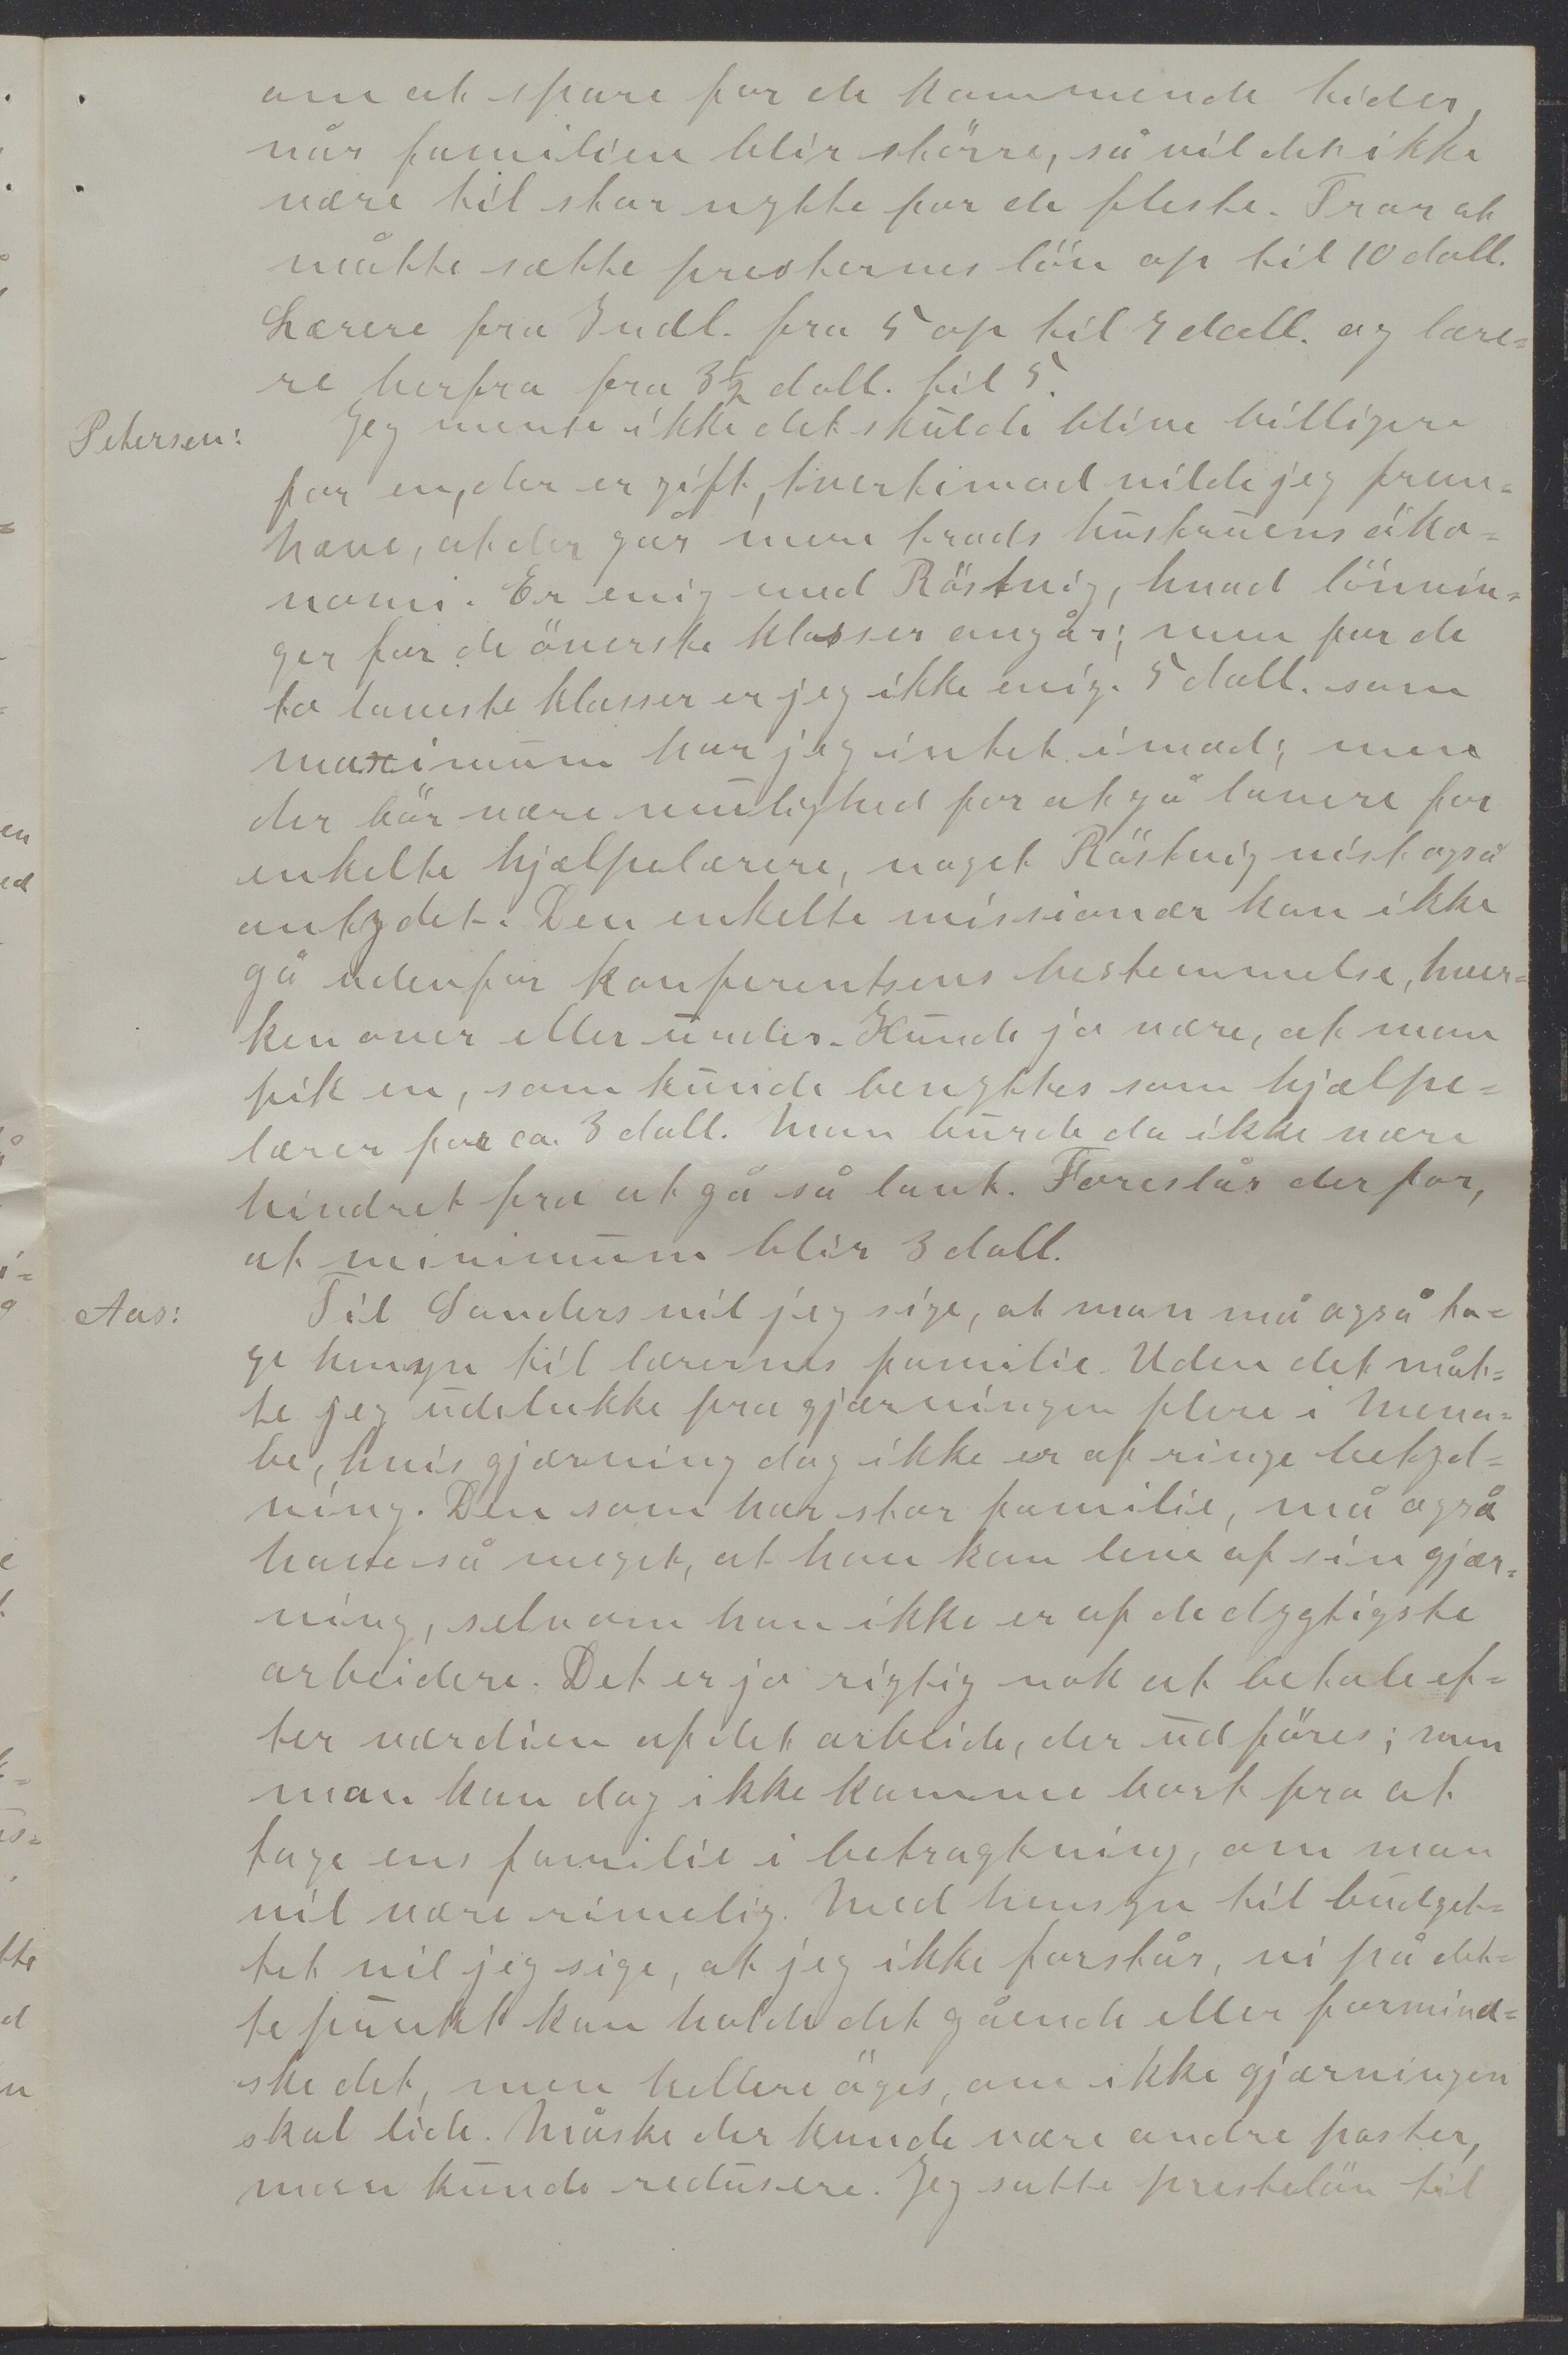 om at spare for de kommende tider,
når familien blir större, så vil det ikke
være til stor nytte for de fleste. Tror at
måtte sætte presternes lön op til 10 doll.
Lærere fra Indl. fra 5 op til 7 doll. og lære=
re herfra fra 3½ doll. til 5.
Petersen: Jeg mente ikke det skulde blive billigere
for en, der er gift, tvertimod vilde jeg frem=
hæve, at der går mere trods hustruens öko=
nomi. Er enig med Röstvig, hvad lönnin=
ger for de överste klasser angår; men for de
to laveste klasser er jeg ikke enig. 5 doll. som
maximum har jeg intet imod; men
der bör være mulighed for at gå lavere for
enkelte hjælpelærere, noget Röstvig vist også
antydet. Den enkelte missionær kan ikke
gå udenfor konferentsens bestemmelse, hver=
ken over eller under. Kunde jo være, at man
fik en, som kunde benyttes som hjælpe=
lærer for ca. 3 doll. Man burde da ikke være
hindret fra at gå så lavt. Foreslår derfor,
at minimum blir 3 doll.
Aas: Til Landers vil jeg sige, at man må også ta=
ge hensyn til lærernes familie. Uden det måt=
te jeg udelukke fra gjærningen flere i Mena=
be, hvis gjærning dog ikke er af ringe betyd=
ning. Den som har stor familie, må også
have så meget, at han kan leve af sin gjær=
ning, selv om han ikke er af de dygtigste
arbeidere. Det er jo rigtig nok at betale ef=
ter værdien af det arbeide, der udföres; men
man kan dog ikke komme bort fra at
tage ens familie i betragtning, om man
vil være rimelig. Med hensyn til budget=
tet vil jeg sige, at jeg ikke forstår, vi på det=
te punkt kan holde det gående eller formind=
ske det, men hellere öges, om ikke gjærningen
skal lide. Måske der kunde være andre poster,
man kunde redusere. Jeg satte prestelön til